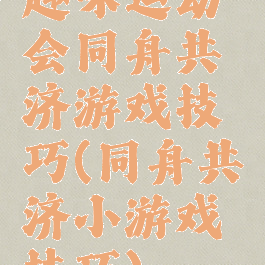 趣味运动
会同舟共
济游戏技
巧(同舟共
济小游戏
技巧)